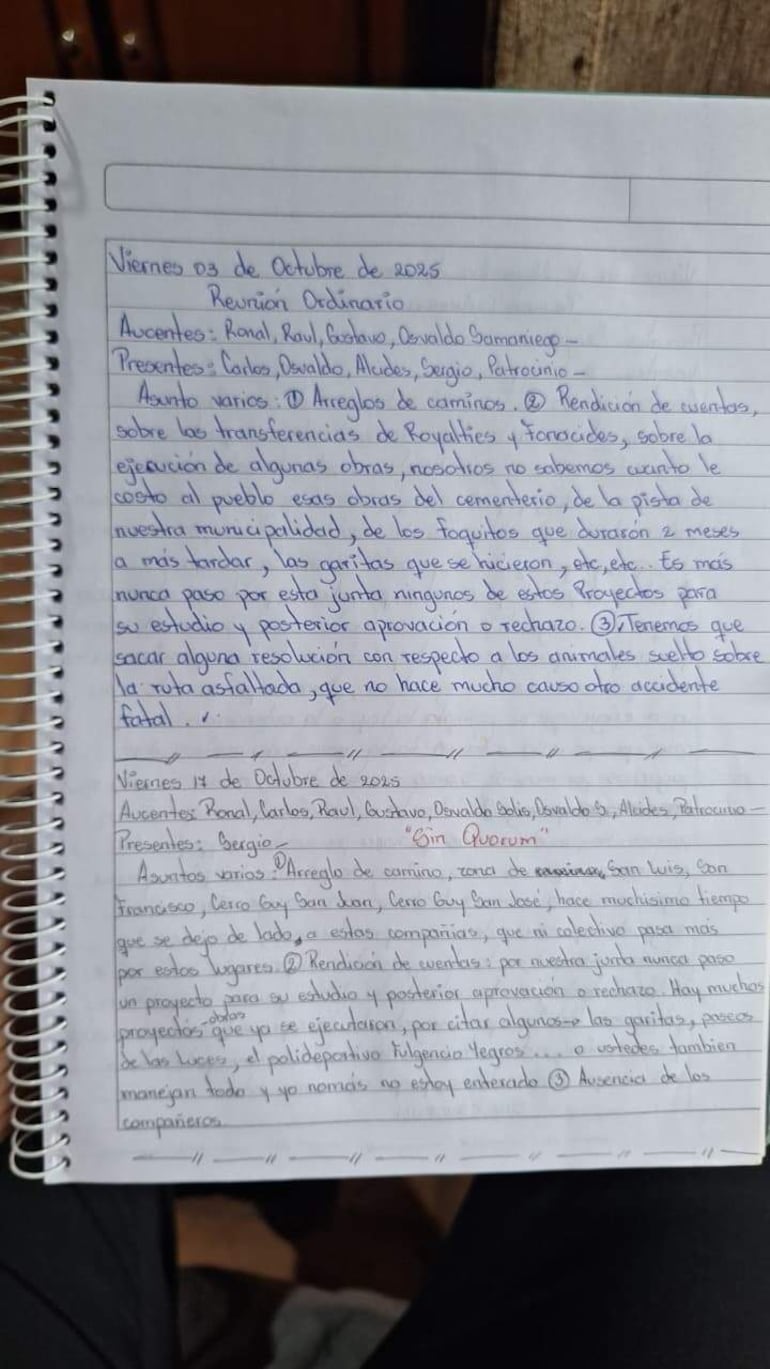 Viernes 03 de Octubre de 2025
Reunión Ordinario
Aucentes: Ronal, Raul, Gustavo, Osvaldo Samaniego -
Presentes: Carlos, Osvaldo, Alcides, Sergio, Patrocinio -
Asunto varios: ① Arreglos de caminos. ② Rendición de cuentas,
sobre las transferencias de Royalties y Fonacides, sobre la
ejecución de algunas obras, nosotros no sabemos cuanto le
costo al pueblo esas obras del cementerio, de la pista de
nuestra municipalidad, de los foquitos que durarón 2 meses
a más tardar, las garitas que se hicieron, etc, etc.. Es más
nunca paso por esta junta ningunos de estos Proyectos para
su estudio y posterior aprovación o rechazo. ③ Tenemos que
sacar alguna resolución con respecto a los animales suelto sobre
la ruta asfaltada, que no hace mucho causo otro accidente
fatal.
Viernes 17 de Octubre de 2025
Aucentes: Ronal, Carlos, Raul, Gustavo, Osvaldo Solis, Osvaldo S., Alcides, Patrocinio -
Presentes: Sergio - "Sin Quorum"
Asuntos varios: ① Arreglo de camino, zona de San Luis, San
Francisco, Cerro Guy San Juan, Cerro Guy San José, hace muchisimo tiempo
que se dejo de lado, a estas compañias, que ni colectivo pasa más
por estos lugares. ② Rendición de cuentas: por nuestra junta nunca paso
un proyecto para su estudio y posterior aprovación o rechazo. Hay muchos
proyectos que ya se ejecutaron, por citar algunos las garitas, paseos
de las luces, el polideportivo Fulgencio Yegros.... o ustedes tambien
manejan todo y yo nomás no estoy enterado ③ Ausencia de los
compañeros